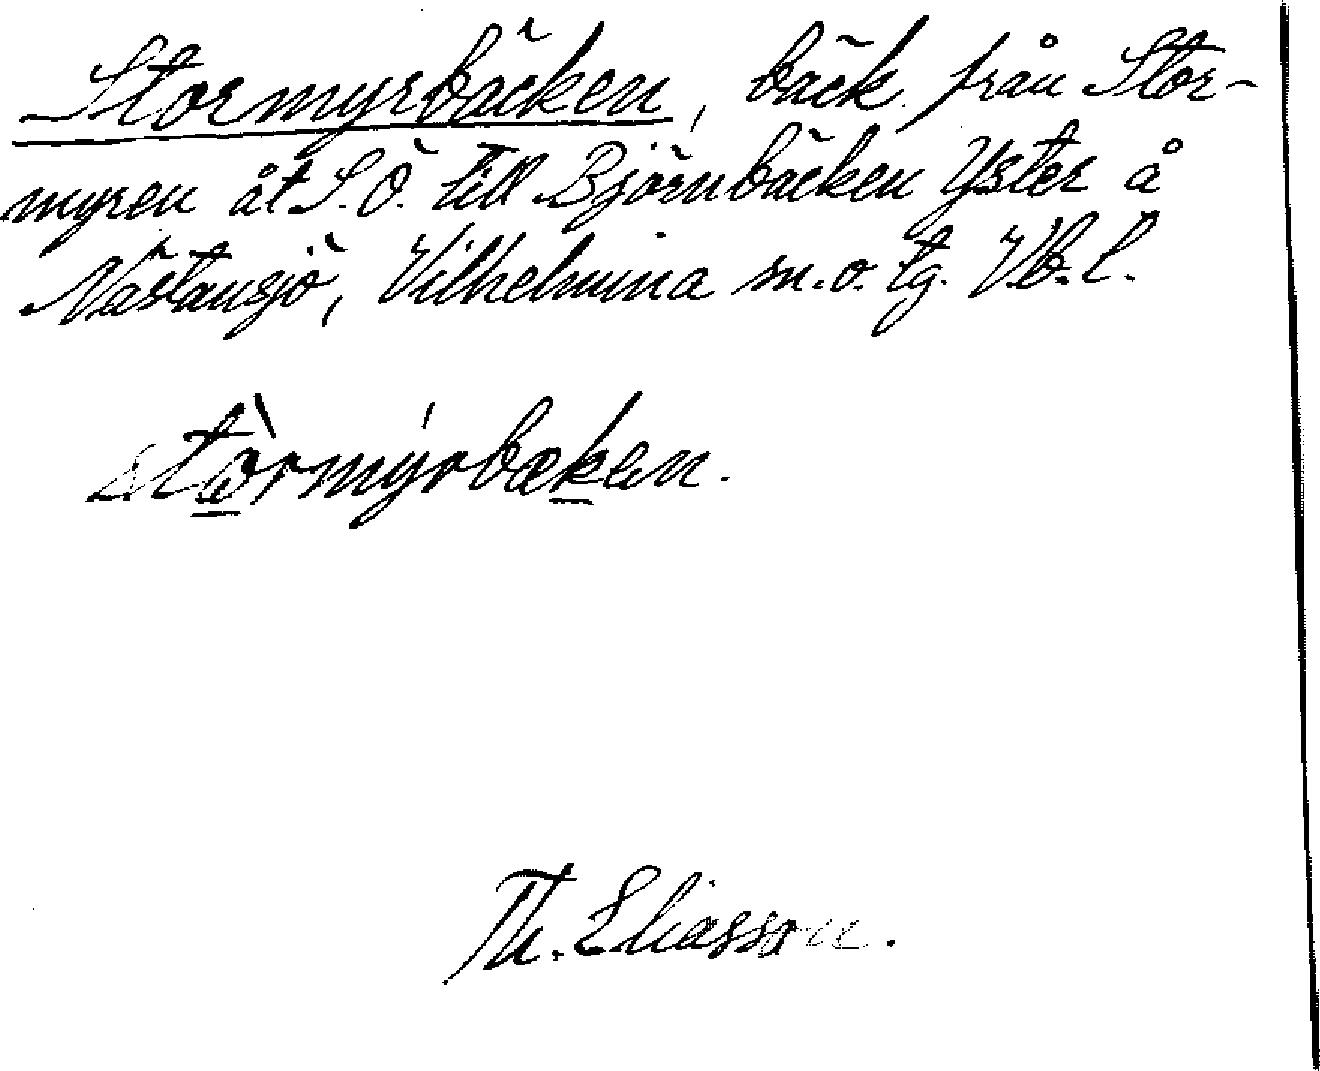 Stormyrbäcken, bäck från Stor-
myren åt S.Ö. till Björnbäcken Yster å
Nästansjö, Vilhelmina sn. o. tg. Vb. l.
stòrmýrbæken.
Th. Eliasson.